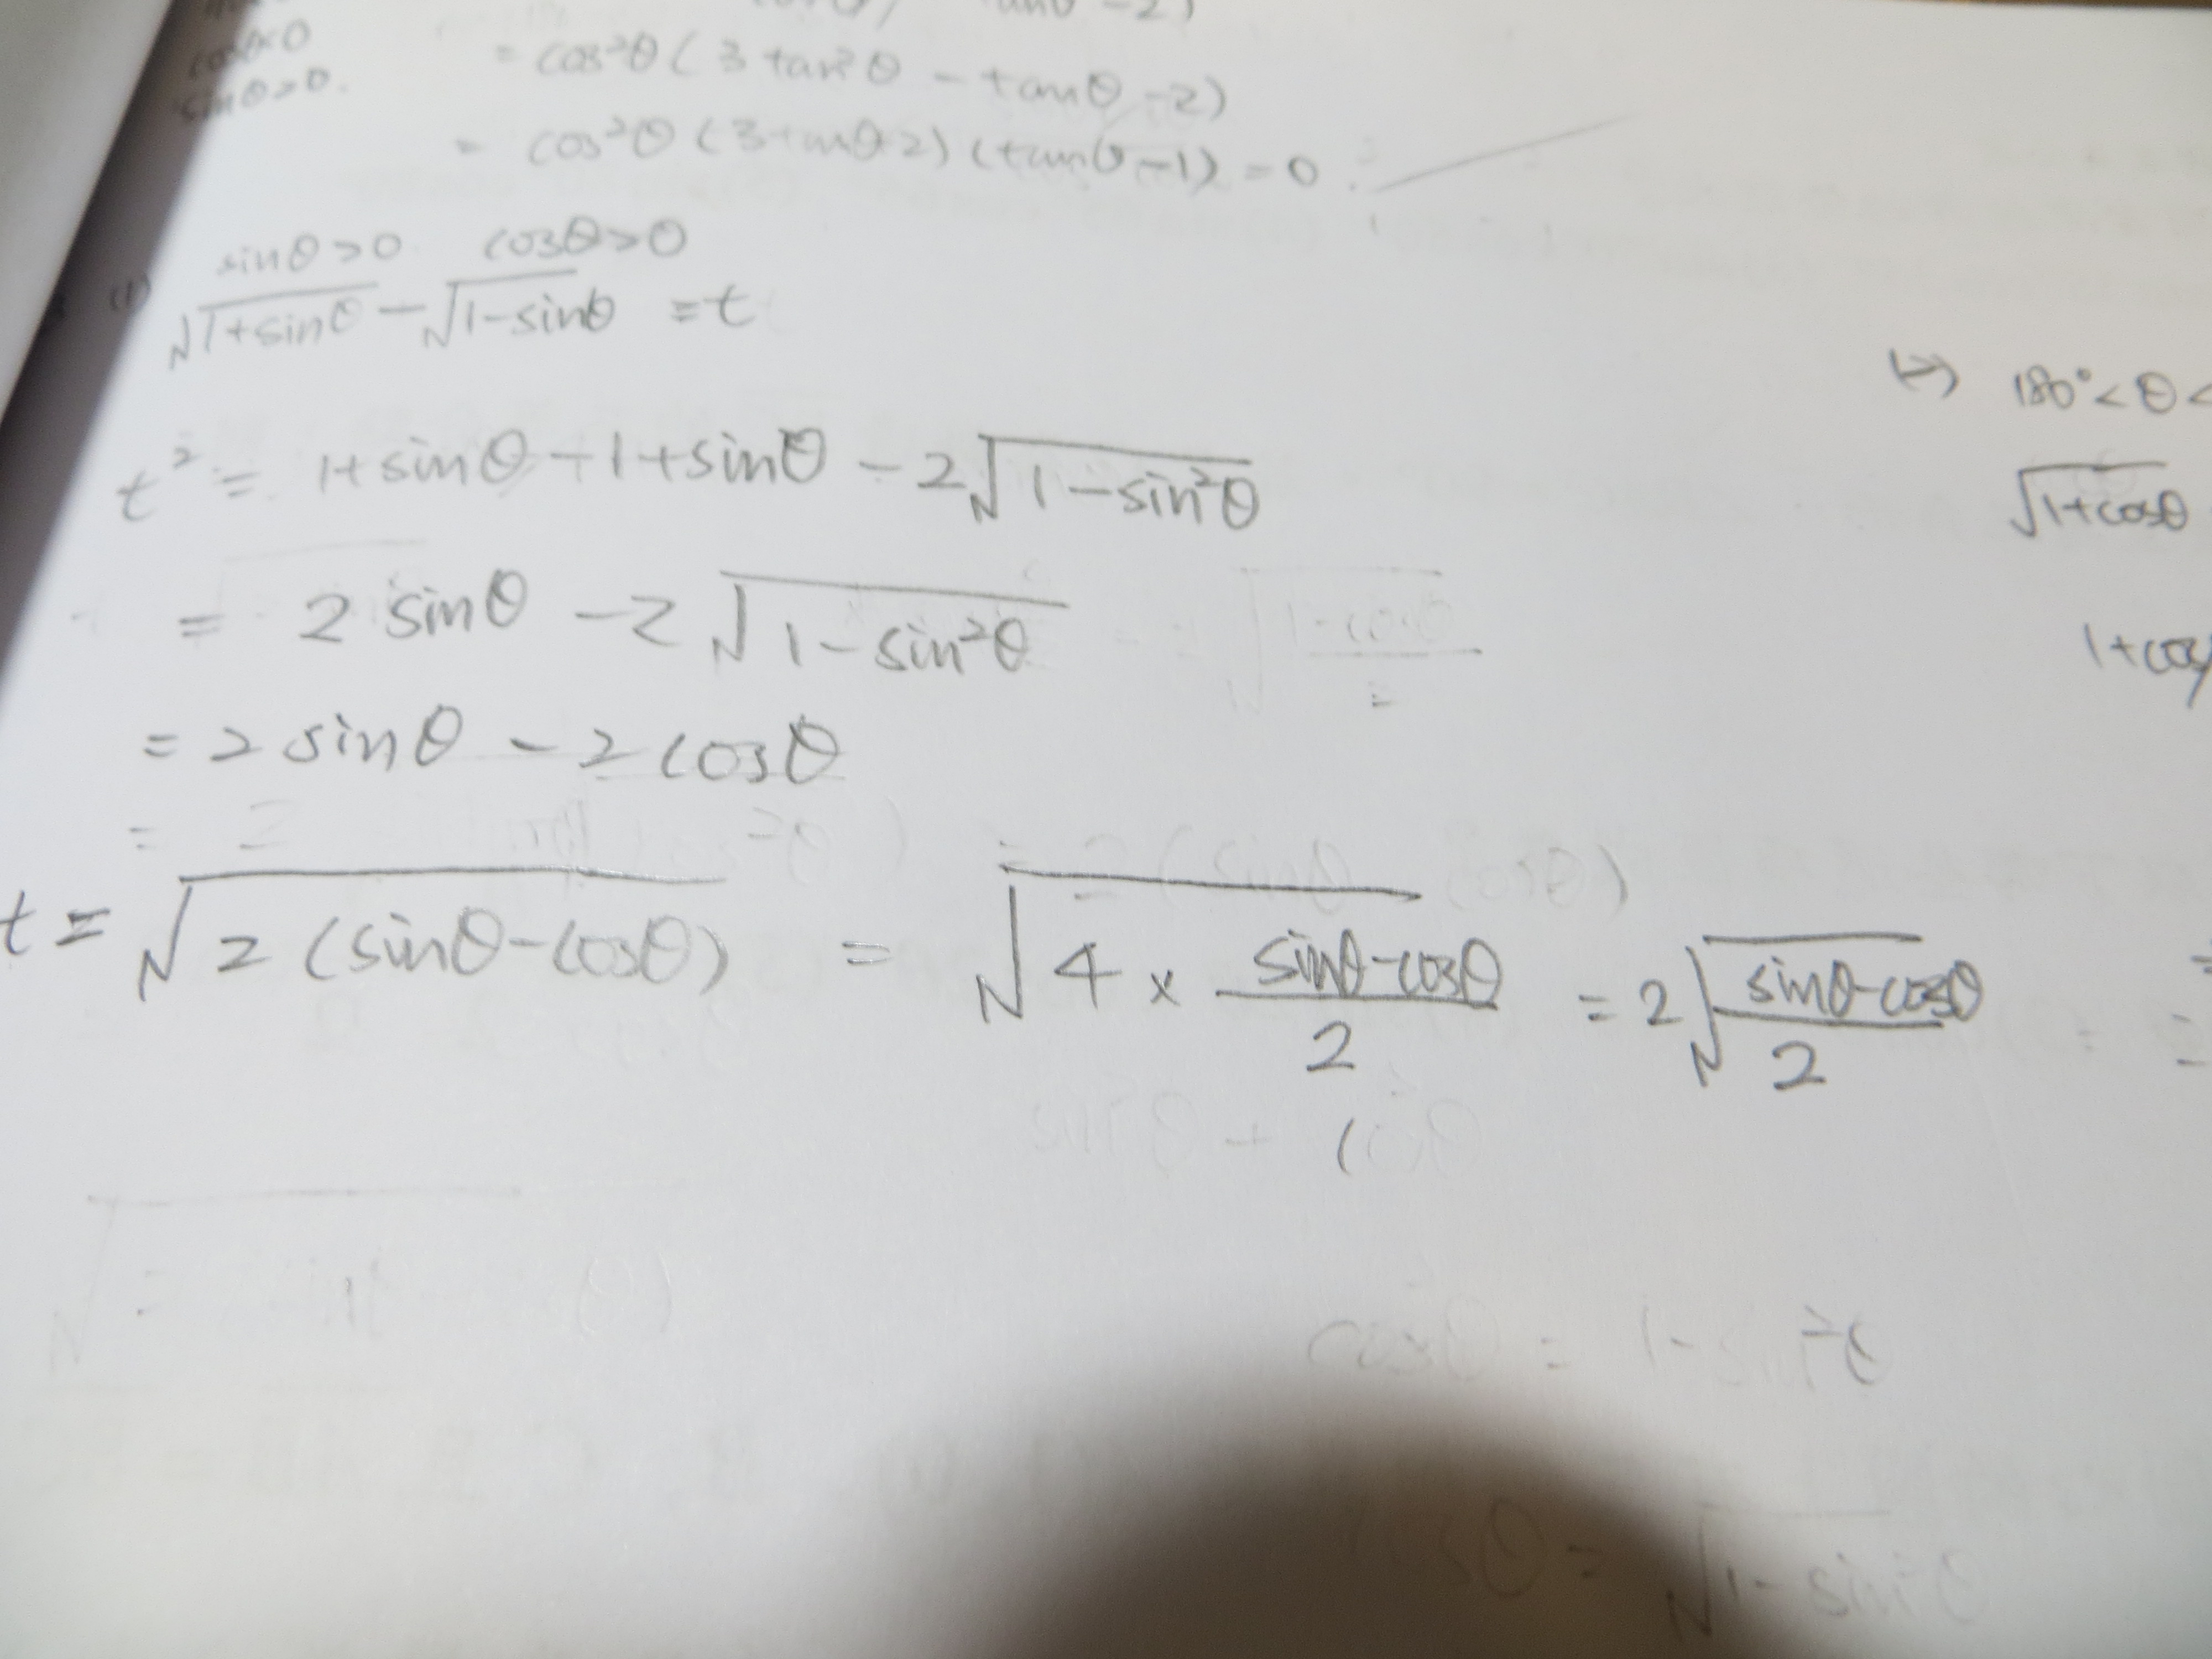 cosθ<0
sinθ>0.
= cos²θ(3tan²θ - tanθ - 2)
= cos²θ(3tanθ 2)(tanθ-1) = 0.
sinθ>0 cosθ>0
(1) √1+sinθ - √1-sinθ = t
t² = 1+sinθ-1+sinθ - 2√1-sin²θ
= 2 sinθ - 2√1-sin²θ
= 2 sinθ - 2 cosθ
t = √2(sinθ-cosθ) = √4 × (sinθ-cosθ)/2 = 2√(sinθ-cosθ)/2
180°<θ<
√1+cosθ
1+cos